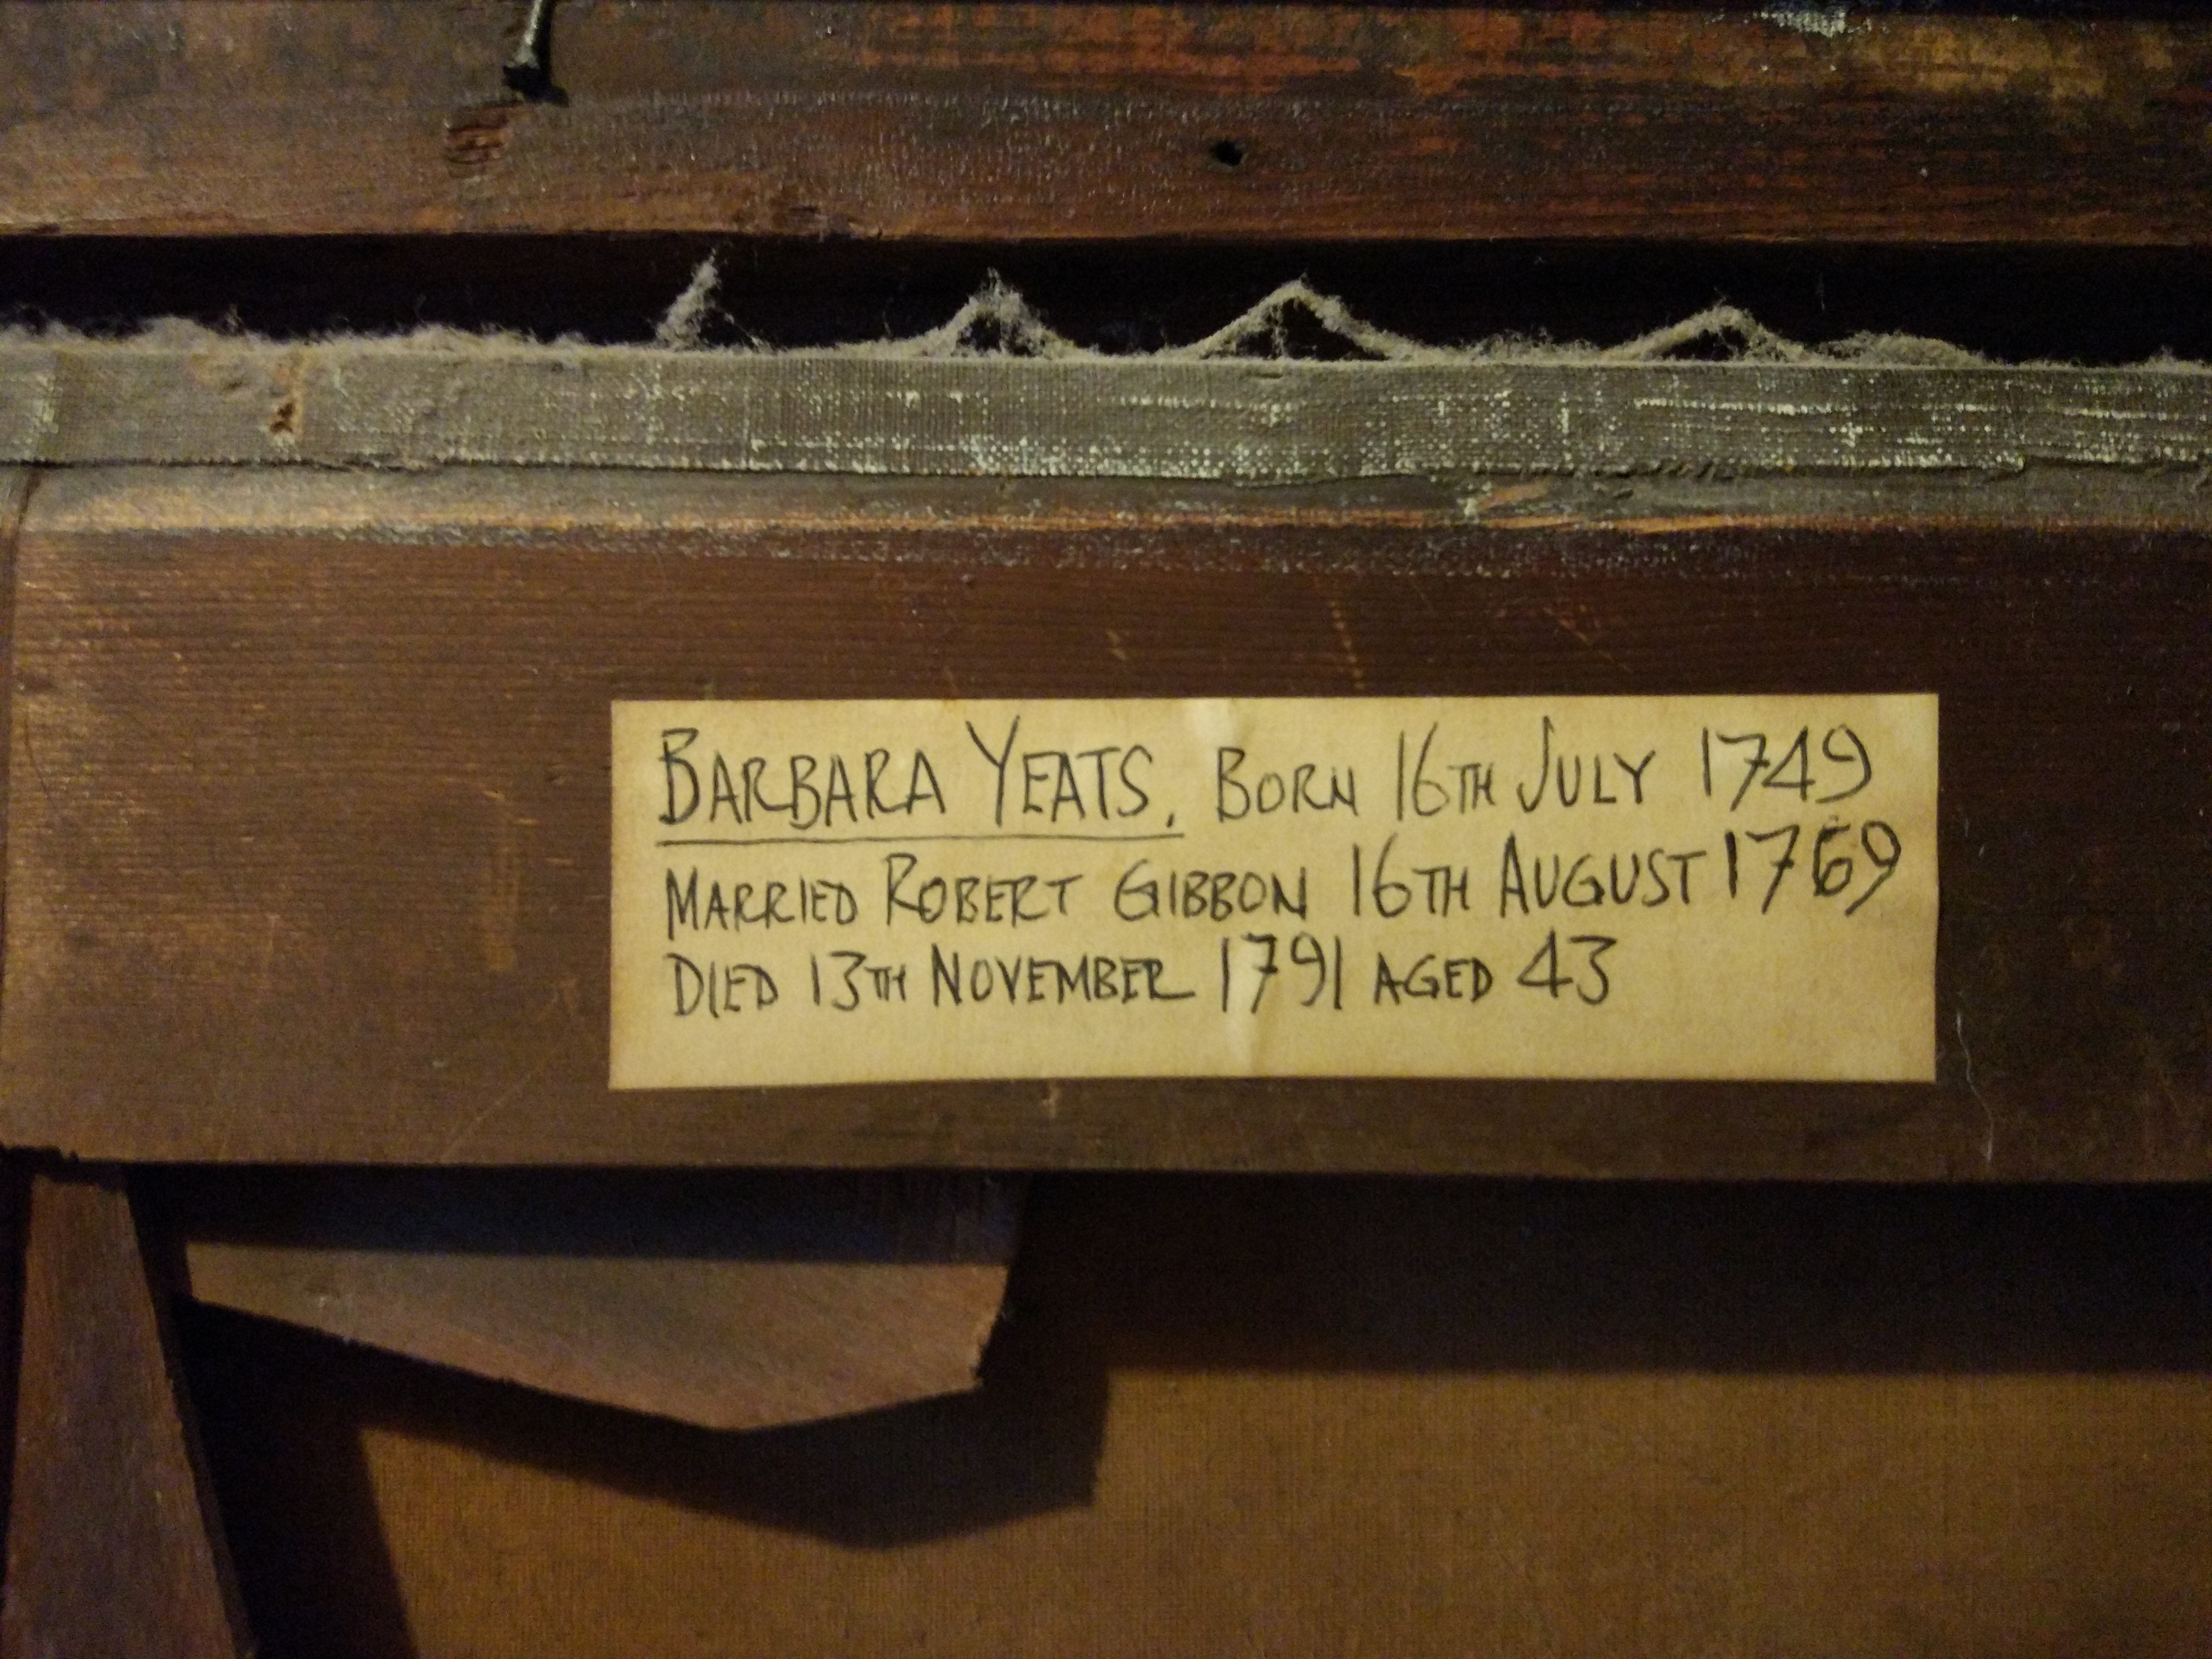 BARBARA YEATS. BORN 16TH JULY 1749
MARRIED ROBERT GIBBON 16TH AUGUST 1769
DIED 13TH NOVEMBER 1791 AGED 43